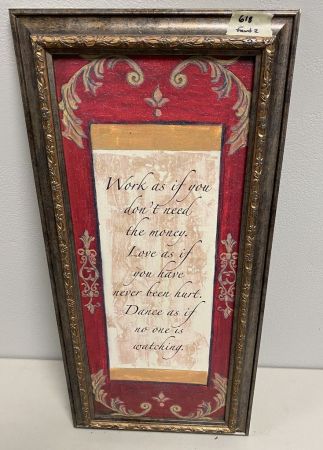 618
Work as if you
don't need
the money.
Love as if
you have
never been hurt.
Dance as if
no one is
watching.